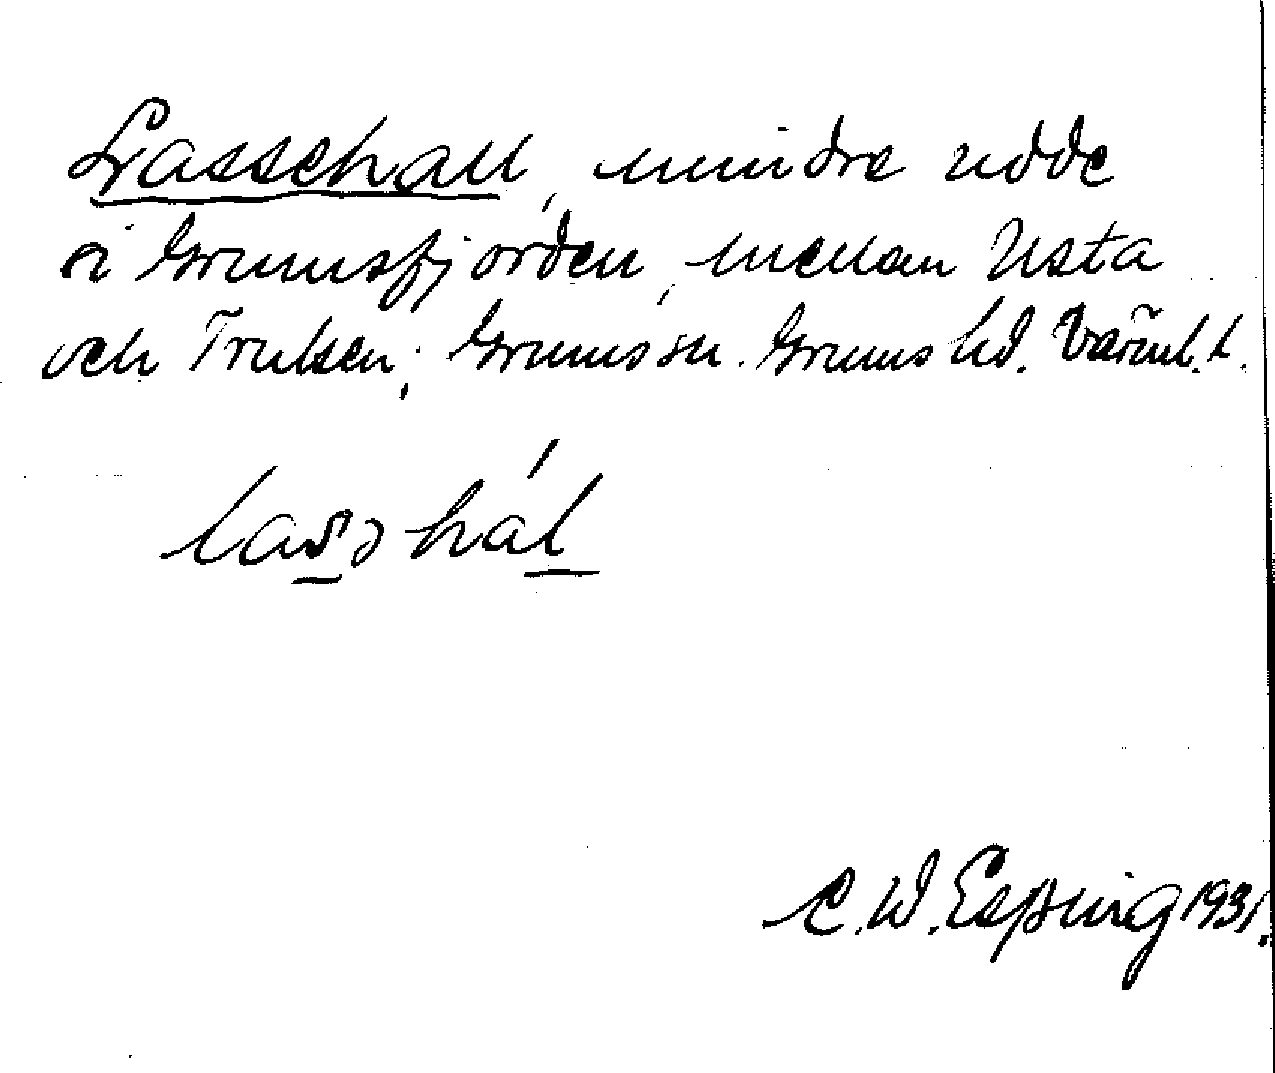 Lassehall, mindre udde
i Grumsfjorden, mellan Usta
och Trulsen; Grums sn. Grums hd. Värml. l.
lasshál
C. W. Esping 1931.